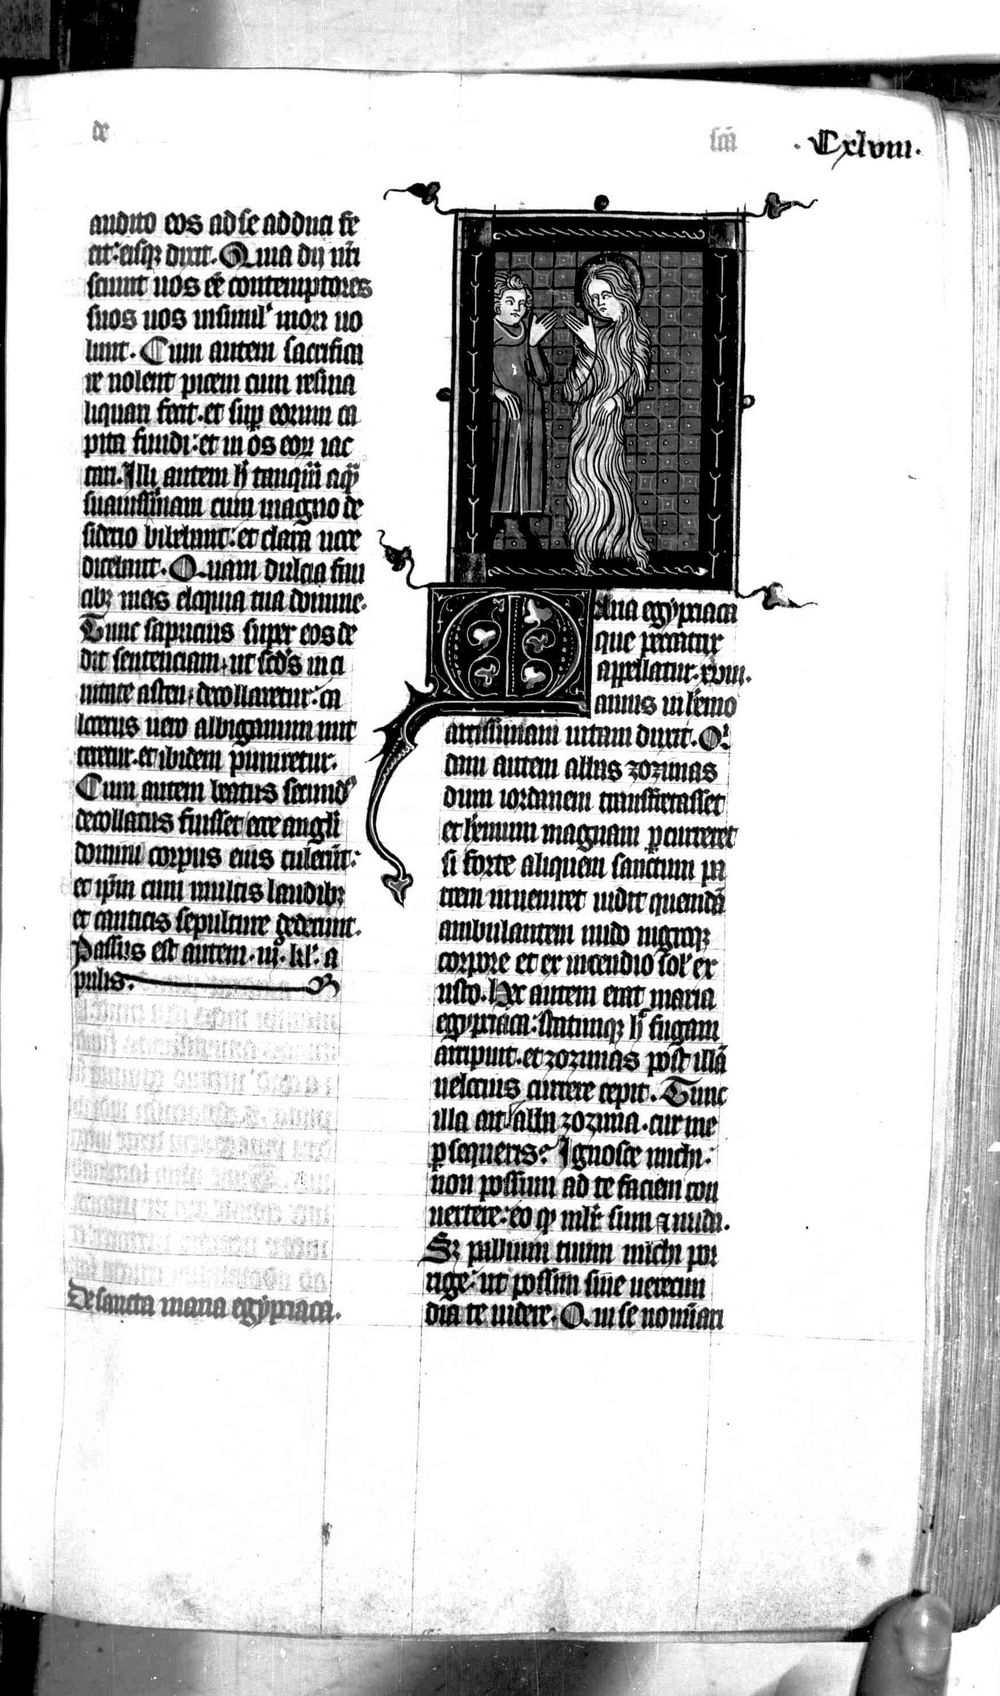 de
scā
·Cxlviii·
audito eos ad se adduci fe
cit: eisq; dixit. Quia dij nr̄i
sciunt uos eē contemptores
suos uos insimul' mori uo
lunt. Cum autem sacrifica
re nolent picem cum resina
liquari fecit. et sup̄ eorum ca
pita fundi: et in os eoꝝ iac
tari. Illi autem h̄ tanquā aq̄ꝫ
suauissimam cum magno de
siderio bibebant: et clara uoce
dicebant. Quam dulcia fau
cibꝫ meis eloquia tua domine.
Tunc sapricius super eos de
dit sentenciam, ut scd's in ci
uitate asten, decollaretur: ca
locerus uero albiganum mit
teretur. et ibidem puniretur.
Cum autem beatus secund9
decollatus fuisset ecce angeli
domini corpus eius tulerūt:
et ip̄m cum multis laudibꝫ
et canticis sepulture dederunt.
Passus est autem .iij. kl'. a
prilis.
De sancta maria egypciaca.
Maria egypciaca
que peccatrix
appellatur. xviii.
annis in h̄emo
artissimam uitam duxit. Qi
dam autem abbas zozimas
dum iordanem transfretasset
et h̄emum magnam ꝑcurreret
si forte aliquem sanctum pa
trem inueniret uidit quendā
ambulantem nudo nigroqꝫ
corpore et ex incendio sol' ex
usto. Hec autem erat maria
egypciaca: statimqꝫ h̄ fugam
arripuit. et zozimas post illā
uelocius currere cepit. Tunc
illa ait, abba zozima. cur me
ꝑsequeris? Ignosce michi:
non possum ad te faciem con
uertere: eo ꝙ mlr̄ sum ⁊ nuda.
Sꝫ pallium tuum michi por
rige: ut possim sine uerecun
dia te uidere. Qui se nominari